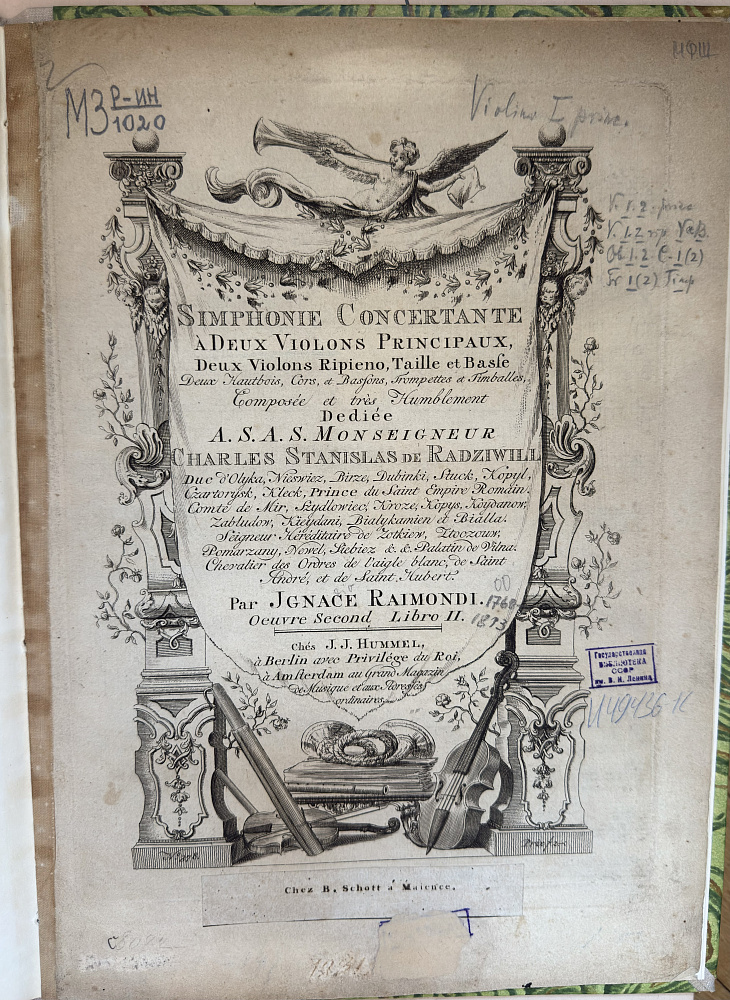 НФШ
МЗ Р-ИН
1020
Violino I princ.
V. 1.2 princ
V. 1.2 rip. Va B.
Ob. 1.2 C-1(2)
Tr 1(2) Timp
SIMPHONIE CONCERTANTE
À DEUX VIOLONS PRINCIPAUX,
Deux Violons Ripieno, Taille et Basse
Deux Hautbois, Cors, et Bassons, Trompettes et Timballes,
Composée et très Humblement
Dediée
A. S. A. S. MONSEIGNEUR
CHARLES STANISLAS DE RADZIWILL
Duc d'Olyka, Nieswiez, Birze, Dubinki, Sluck, Kopyl,
Czartorysk, Kleck, Prince du Saint Empire Romain.
Comte de Mir, Szydlowiec, Kroze, Kopys, Koydanow,
Zabludow, Kieydani, Bialykamien et Bialla.
Seigneur Héréditaire de Zolkiew, Zloczouw,
Pomarzany, Newel, Siebiez &. &. Palatin de Vilna.
Chevalier des Ordres de l'aigle blanc, de Saint
André, et de Saint Hubert.
Par JGNACE RAIMONDI.
1760
1813
Oeuvre Second Libro II.
Chés J. J. HUMMEL,
à Berlin avec Privilége du Roi,
à Amsterdam au Grand Magazin
de Musique et aux Adresses
ordinaires.
Государственная
БИБЛИОТЕКА
СССР
им. В. И. Ленина
И49436-К
Chez B. Schott à Maience.